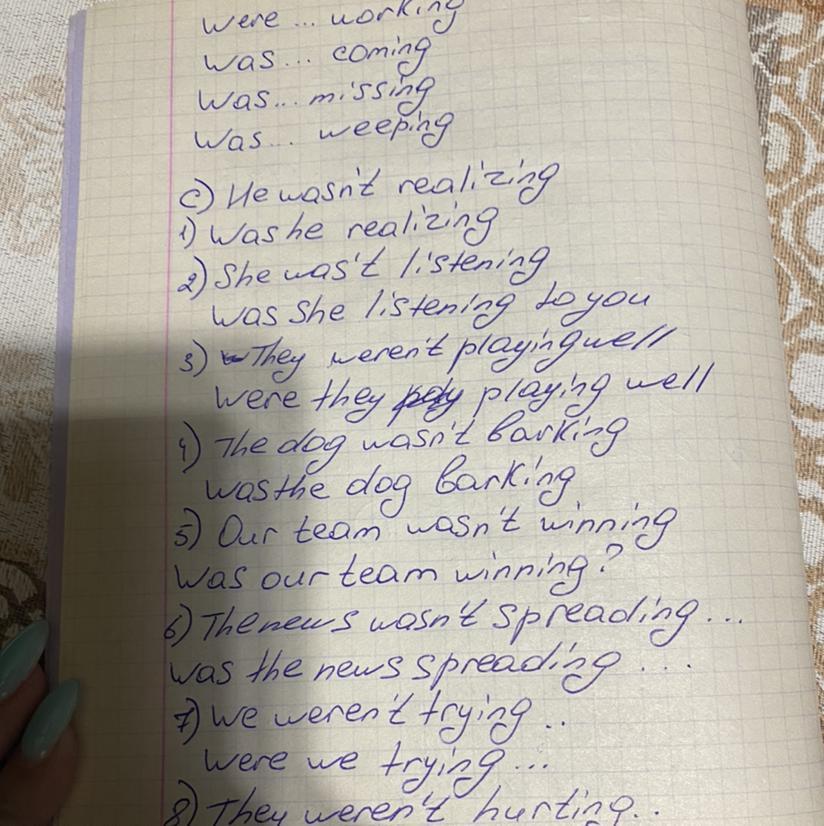 were ... working
was ... coming
was... missing
was... weeping
c) He wasn't realizing
1) Was he realizing
2) She was't listening
was she listening to you
3) They weren't playing well
were they playing well
4) The dog wasn't barking
was the dog barking
5) Our team wasn't winning
was our team winning?
6) The news wasn't spreading...
was the news spreading ...
7) we weren't trying ..
were we trying...
8) They weren't hurting..